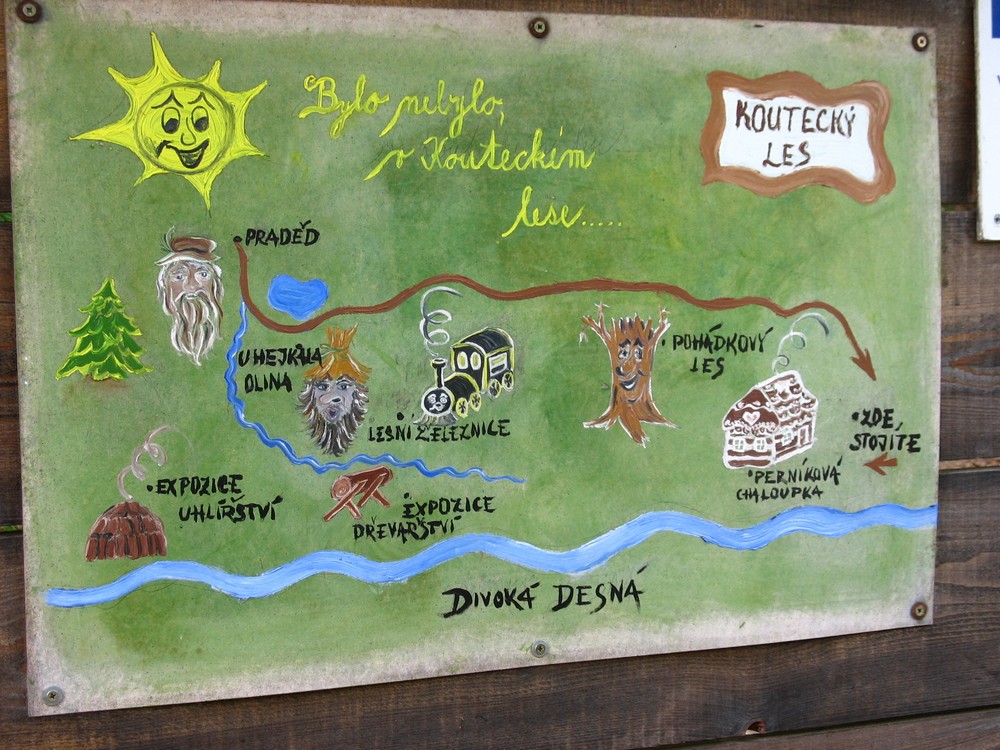 Bylo nebylo,
v Kouteckém
lese.....
KOUTECKÝ
LES
PRADĚD
U HEJKALA
OLINA
LESNÍ ŽELEZNICE
POHÁDKOVÝ
LES
ZDE,
STOJÍTE
PERNÍKOVÁ
CHALOUPKA
EXPOZICE
UHLÍŘSTVÍ
EXPOZICE
DŘEVAŘSTVÍ
DIVOKÁ DESNÁ